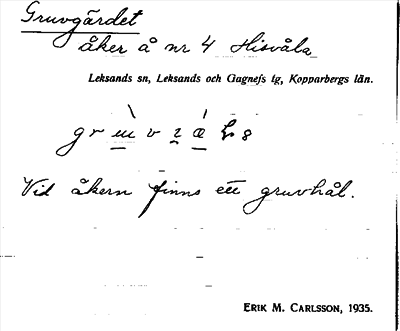 Gruvgärdet
åker å nr 4 Hisvåla
Leksands sn, Leksands och Gagnefs tg, Kopparbergs län.
Vid åkern finns ett gruvhål.
ERIK M. CARLSSON, 1935.